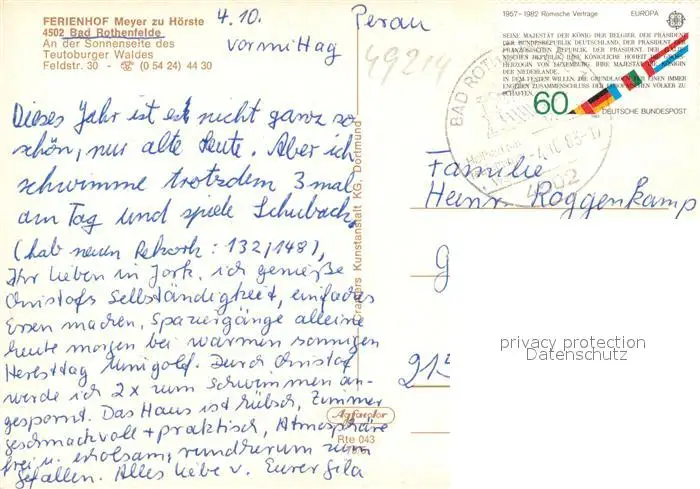 FERIENHOF Meyer zu Hörste
4502 Bad Rothenfelde
An der Sonnenseite des
Teutoburger Waldes
Feldstr. 30 - ☎ (0 54 24) 44 30
4.10.
vormittag
49214
Dieses Jahr ist es nicht ganz so
schön, nur alte Leute. Aber ich
schwimme trotzdem 3 mal
am Tag und spiele Schubach,
(hab neuen Rekord: 132/148),
Ihr Lieben in Jork, ich genieße
Christofs Selbständigkeit, einfaches
Essen machen, Spaziergänge alleine
heute morgen bei warmen sonnigen
Herbsttag Minigolf. Durch Christof
werde ich 2x zum Schwimmen an-
gespornt. Das Haus ist hübsch, Zimmer
geschmackvoll + praktisch, Atmosphäre
frei u. erholsam, rundherum zum
Gefallen. Alles Liebe v. Eurer Gila
Cramers Kunstanstalt KG, Dortmund
Agfacolor
Rte 043
1957–1982 Römische Verträge EUROPA
SEINE MAJESTÄT DER KÖNIG DER BELGIER, DER PRÄSIDENT
DER BUNDESREPUBLIK DEUTSCHLAND, DER PRÄSIDENT DER
FRANZÖSISCHEN REPUBLIK, DER PRÄSIDENT DER ITALIE-
NISCHEN REPUBLIK, IHRE KÖNIGLICHE HOHEIT DIE GROSS-
HERZOGIN VON LUXEMBURG, IHRE MAJESTÄT DIE KÖNIGIN
DER NIEDERLANDE,
IN DEM FESTEN WILLEN, DIE GRUNDLAGEN FÜR EINEN IMMER
ENGEREN ZUSAMMENSCHLUSS DER EUROPÄISCHEN VÖLKER ZU
SCHAFFEN,
60
DEUTSCHE BUNDESPOST
BAD ROTH
-4.10.83-17
4502
Familie
Heinr. Roggenkamp
G
215
privacy protection
Datenschutz